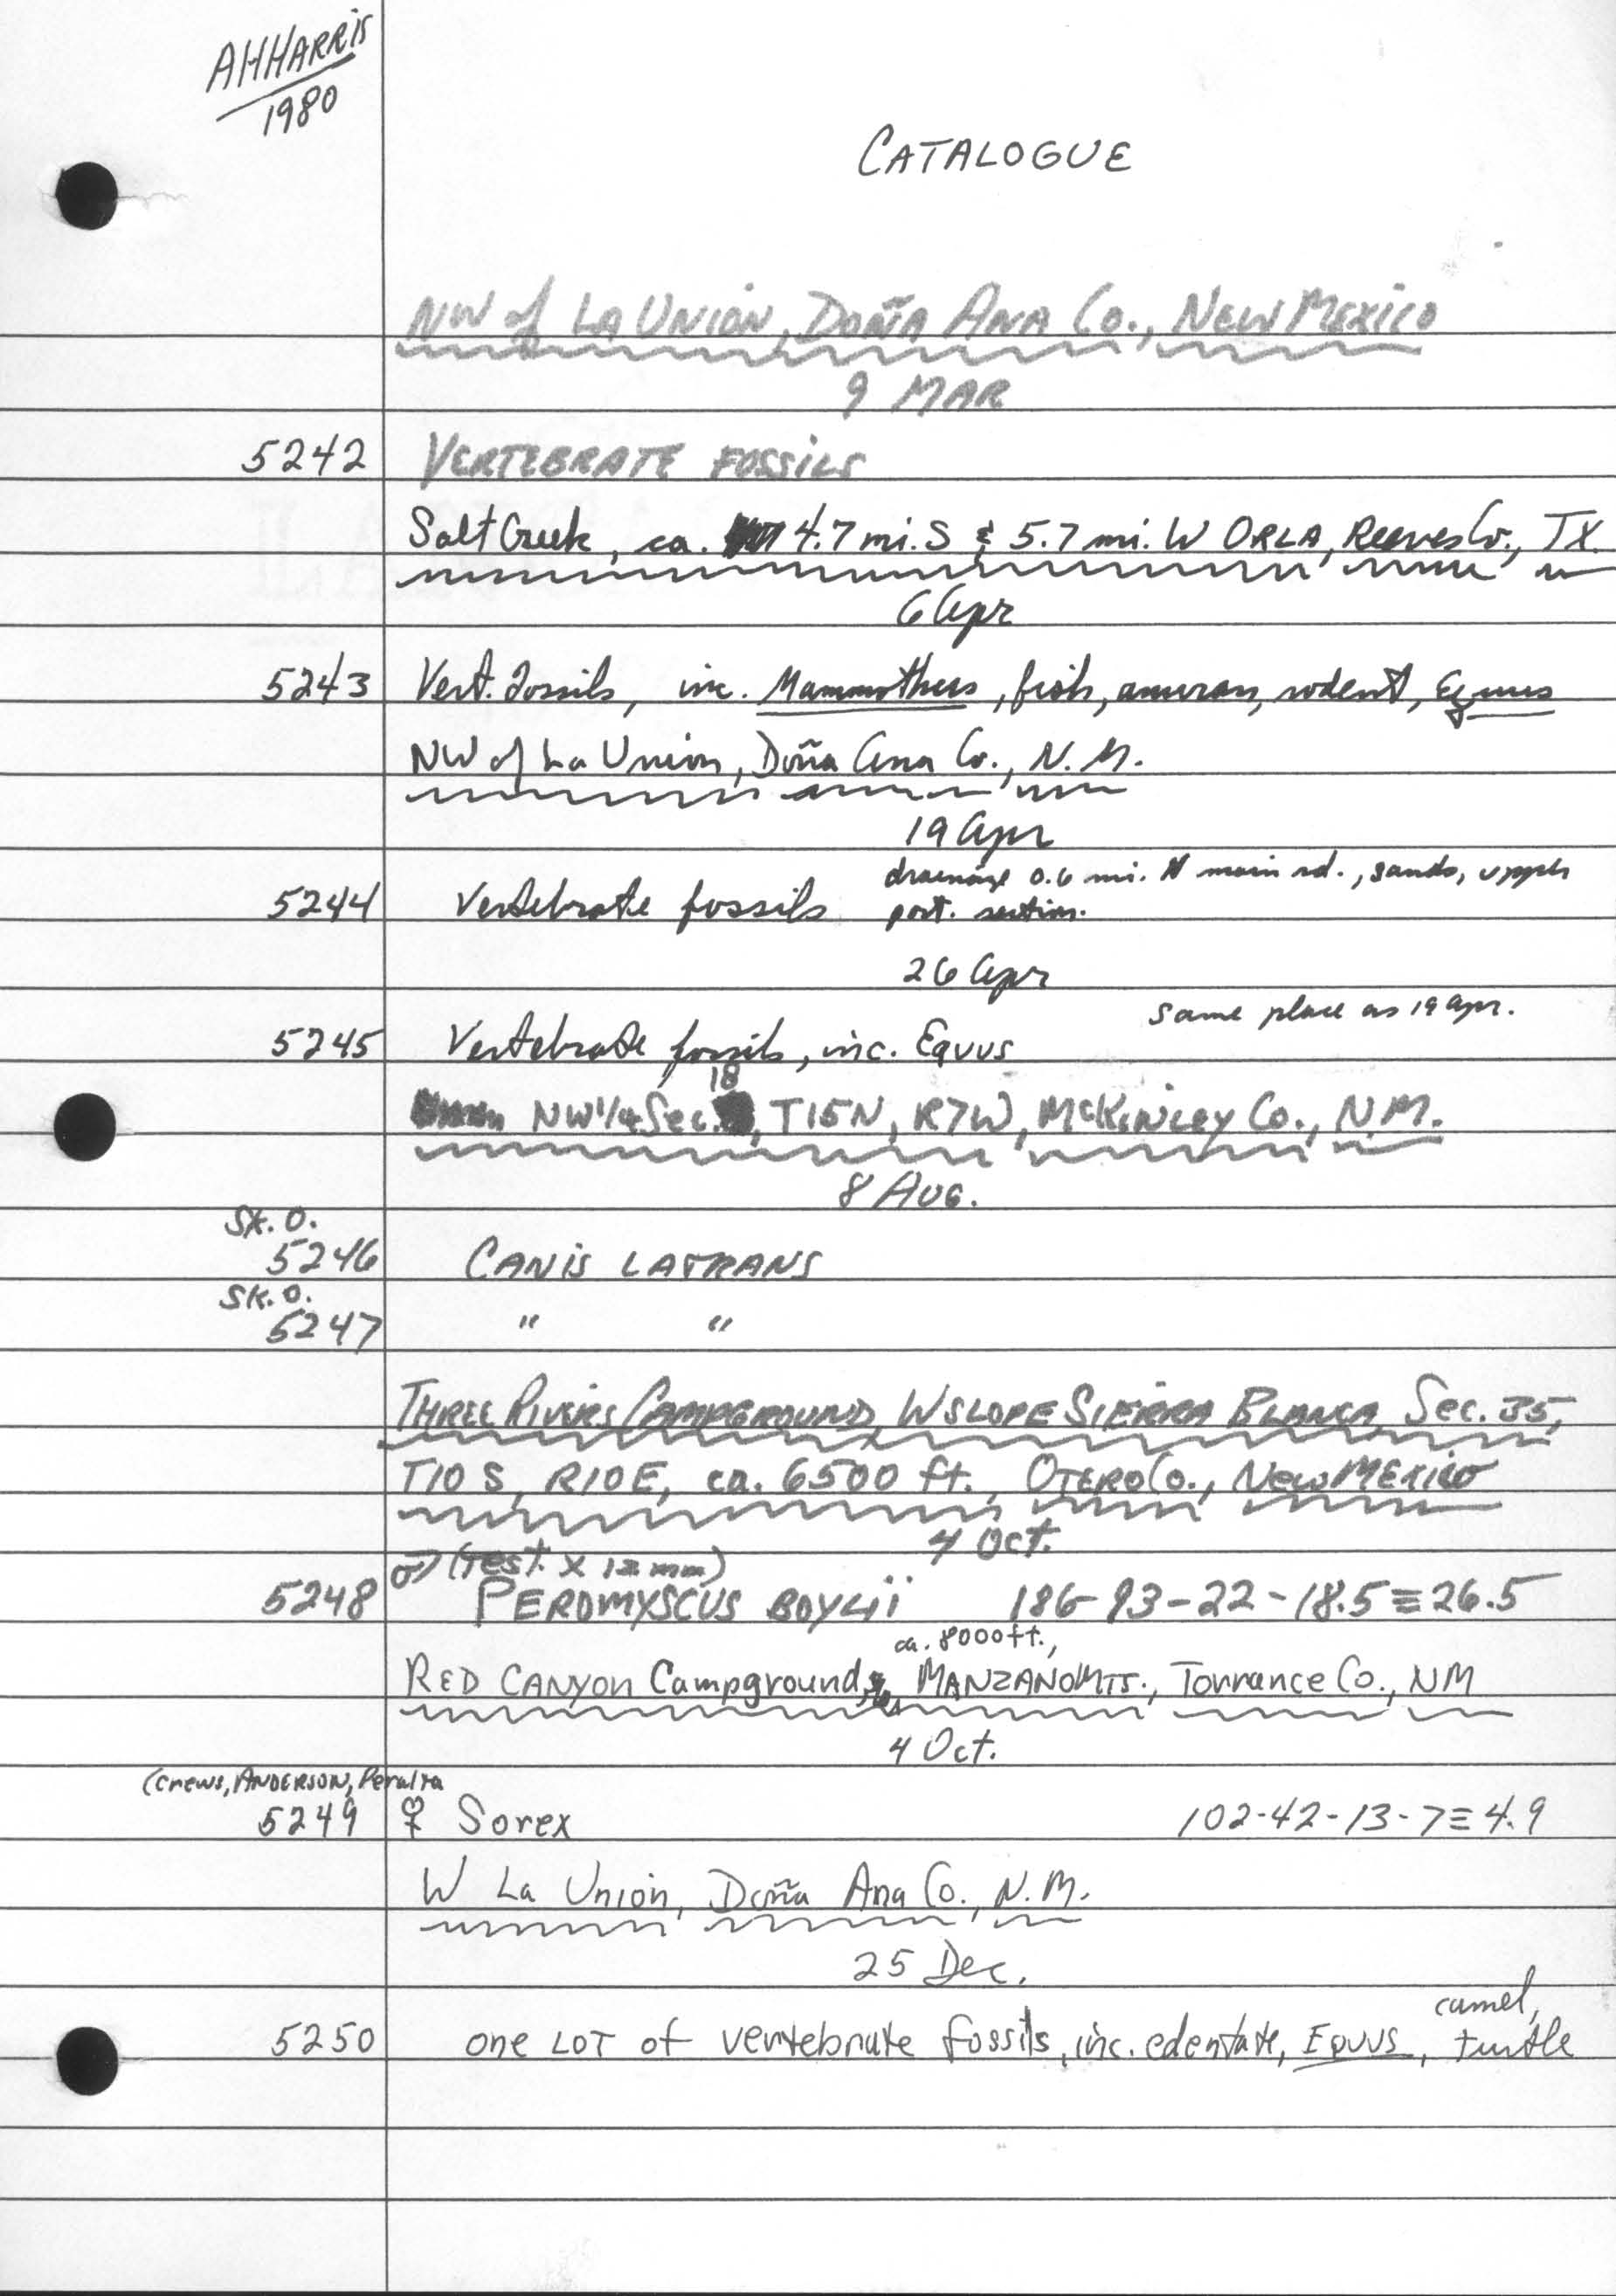 AHHARRIS
1980
CATALOGUE
NW of LA UNION, DOÑA ANA Co., NEW MEXICO
9 MAR
5242 VERTEBRATE FOSSILS
Salt Creek, ca. 4.7 mi. S & 5.7 mi. W ORLA, Reeves Co., TX.
6 Apr
5243 Vert. fossils, inc. Mammothus, fish, anuran, rodent, Equus
NW of La Union, Doña Ana Co., N.M.
19 Apr
drainage 0.6 mi. N main rd., sands, upper
5244 Vertebrate fossils port. section.
26 Apr
same place as 19 Apr.
5245 Vertebrate fossils, inc. Equus
18
NW1/4 Sec. , T15N, R7W, McKINLEY Co., N.M.
8 AUG.
SK. O.
5246 CANIS LATRANS
SK. O.
5247 " "
THREE RIVERS CAMPGROUND, W SLOPE SIERRA BLANCA, SEC. 35,
T10S, R10E, ca. 6500 ft., OTERO Co., NEW MEXICO
4 Oct.
♂ (TEST. X 12 mm)
5248 PEROMYSCUS BOYLII 186-93-22-18.5≡26.5
ca. 8000 ft.,
RED CANYON Campground, MANZANO MTS., Torrance Co., NM
4 Oct.
(Crews, ANDERSON, Peralta
5249 ♀ Sorex 102-42-13-7≡4.9
W La Union, Doña Ana Co., N.M.
25 Dec.
camel,
5250 one LOT of vertebrate fossils, inc. edentate, EQUUS, turtle